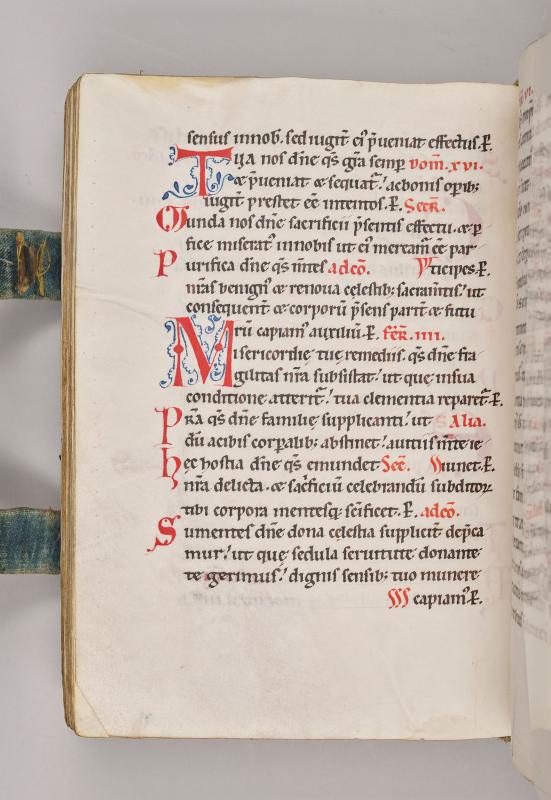 sensus innob. sed iugit̄ ei᷒ p̄ueniat effectus. P̄.
Tua nos dn̄e qs̄ gr̄a semp̱ Dom̄. xvi.
& p̄ueniat & sequat᷑. ac bonis opib;
iugit̄ prestet ee intentos. P̄. Secr̄.
Munda nos dn̄e sacrificii p̄sentis effectu. & p̱
fice miserat᷑ innobis ut ei᷒ meream᷑ ee par
Purifica dn̄e qs̄ m̄tes adcō. ticipes. P̄.
nr̄as benign᷒ & renoua celestib; sacram̄tis. ut
consequent̄ & corporū p̄sens parit̄ & futu
rū capiam᷒ auxiliū. P̄. fer̄. iiii.
Misericordie tue remediis. qs̄ dn̄e fra
gilitas nr̄a subsistat. ut que insua
conditione atterit᷑. tua clementia reparet᷑. P̄.
Pr̄a qs̄ dn̄e familie supplicanti. ut Alia.
dū acibis corp̱alib; abstinet. auitiis m̄te ie
hec hostia dn̄e qs̄ emundet Sec̄. iunet. P̄.
nr̄a delicta. & sac̄ficiū celebrandū subditoꝝ
tibi corpora mentesq; sc̄ificet. P̄. adcō.
Sumentes dn̄e dona celestia supplicit̄ dep̄ca
mur. ut que sedula seruitute donante
te gerimus. dignis sensib; tuo munere
capiam᷒. P̄.